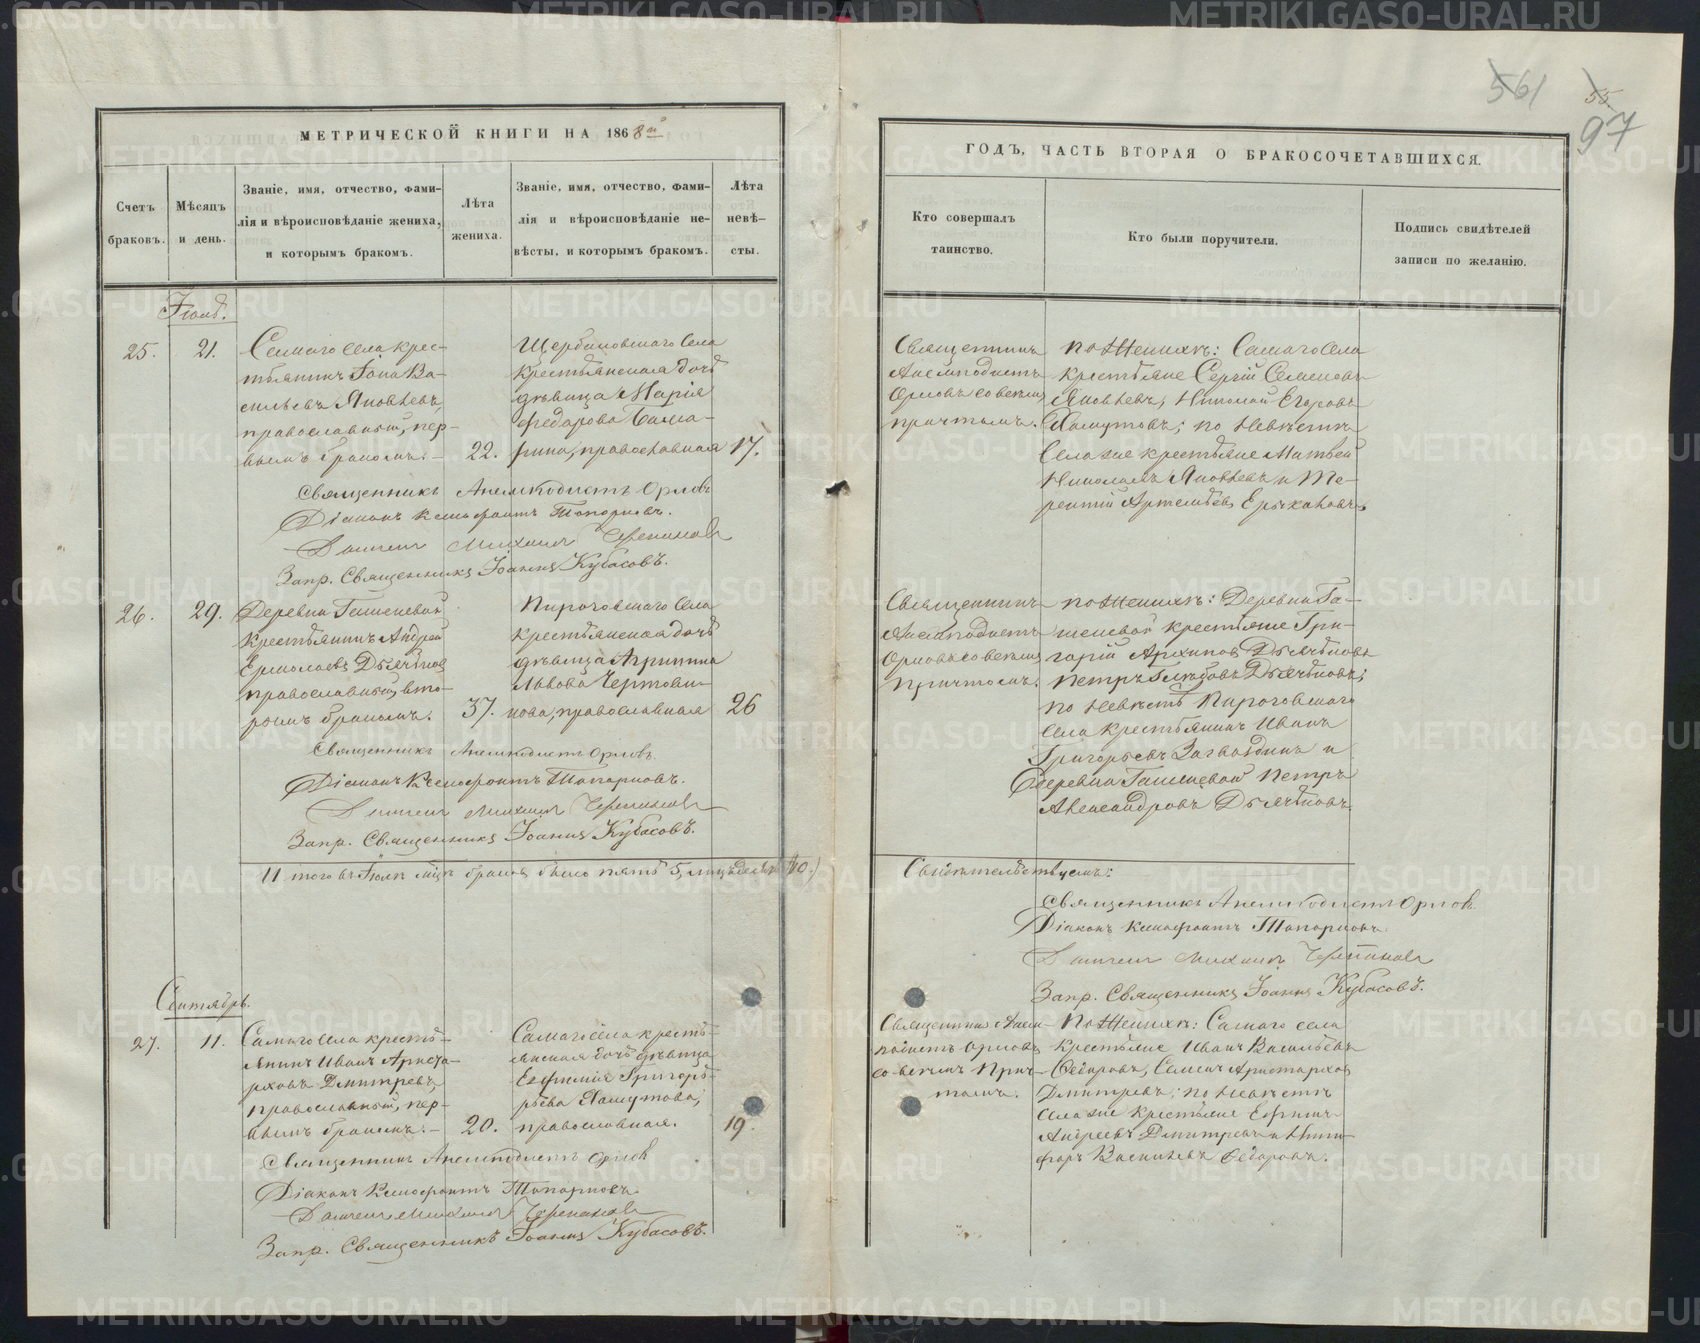 МЕТРИЧЕСКОЙ КНИГИ НА 1868 й
Счетъ браковъ.
Мѣсяцъ и день.
Званіе, имя, отчество, фами-
лія и вѣроисповѣданіе жениха,
и которымъ бракомъ.
Лѣта жениха.
Званіе, имя, отчество, фами-
лія и вѣроисповѣданіе не-
вѣсты, и которымъ бракомъ.
Лѣта невѣ-
сты.
25.
21.
Самаго села крес-
тьянинъ Іона Ва-
сильевъ Яковлевъ,
православный, пер-
вымъ бракомъ.
22.
Щербаковскаго села
крестьянская дочь
дѣвица Марія
Федорова
православная
17.
Священникъ Анемподистъ Орловъ
Діаконъ Ксенофонтъ Топорковъ.
Михаилъ Черепановъ
Запр. Священникъ Іоаннъ Кубасовъ.
26.
29.
Деревни
крестьянинъ Андрей
Ермолаевъ
православный, вто-
рымъ бракомъ.
37.
Пироговскаго села
крестьянская дочь
дѣвица Агрипина
Львова
православная
26
Священникъ Анемподистъ Орловъ.
Діаконъ Ксенофонтъ Топорковъ.
Михаилъ Черепановъ
Запр. Священникъ Іоаннъ Кубасовъ.
Итого въ Іюлѣ браковъ было пять 5,
Сентябрь.
27.
11.
Самаго села кресть-
янинъ Иванъ Ариста-
рховъ Дмитревъ
православный, пер-
вымъ бракомъ.
20.
Самаго села кресть-
янская дочь дѣвица
Евфимія Григорь-
ева Хамутова,
православная.
19.
Священникъ Анемподистъ Орловъ
Діаконъ Ксенофонтъ Топорковъ
Михаилъ Черепановъ
Запр. Священникъ Іоаннъ Кубасовъ.
561
55.
97
ГОДЪ, ЧАСТЬ ВТОРАЯ О БРАКОСОЧЕТАВШИХСЯ.
Кто совершалъ
таинство.
Кто были поручители.
Подпись свидѣтелей
записи по желанію.
Священникъ
Анемподистъ
Орловъ со всѣмъ
причтомъ.
по Женихѣ: Самаго села
крестьяне Сергій Семеновъ
Яковлевъ, Николай Егоровъ
Хамутовъ; по Невѣстѣ
села же крестьяне Матвей
Николаевъ Яковлевъ и Те-
рентій Артемьевъ
Священникъ
Анемподистъ
Орловъ со всѣмъ
причтомъ.
по Женихѣ: Деревни
крестьяне Гри-
горій Архиповъ
Петръ Глѣбовъ
по Невѣстѣ Пироговскаго
села крестьянинъ Иванъ
Григорьевъ и
деревни Петръ
Александровъ
Свидѣтельствуемъ:
Священникъ Анемподистъ Орловъ
Діаконъ Ксенофонтъ Топорковъ
Михаилъ Черепановъ
Запр. Священникъ Іоаннъ Кубасовъ.
Священникъ Анем-
подистъ Орловъ
со всѣмъ прич-
томъ.
По Женихѣ: Самаго села
крестьяне Иванъ Васильевъ
Ѳедоровъ, Семенъ Аристархов
Дмитревъ; по Невѣстѣ
села же крестьяне Ефимъ
Андреевъ Дмитревъ и Ники-
форъ Васильевъ Ѳедоровъ.
METRIKI.GASO-URAL.RU